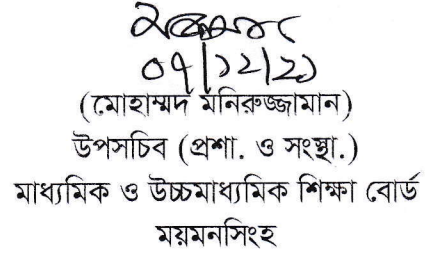 ০৭/১২/২১
(মোহাম্মদ মনিরুজ্জামান)
উপসচিব (প্রশা. ও সংস্থা.)
মাধ্যমিক ও উচ্চমাধ্যমিক শিক্ষা বোর্ড
ময়মনসিংহ